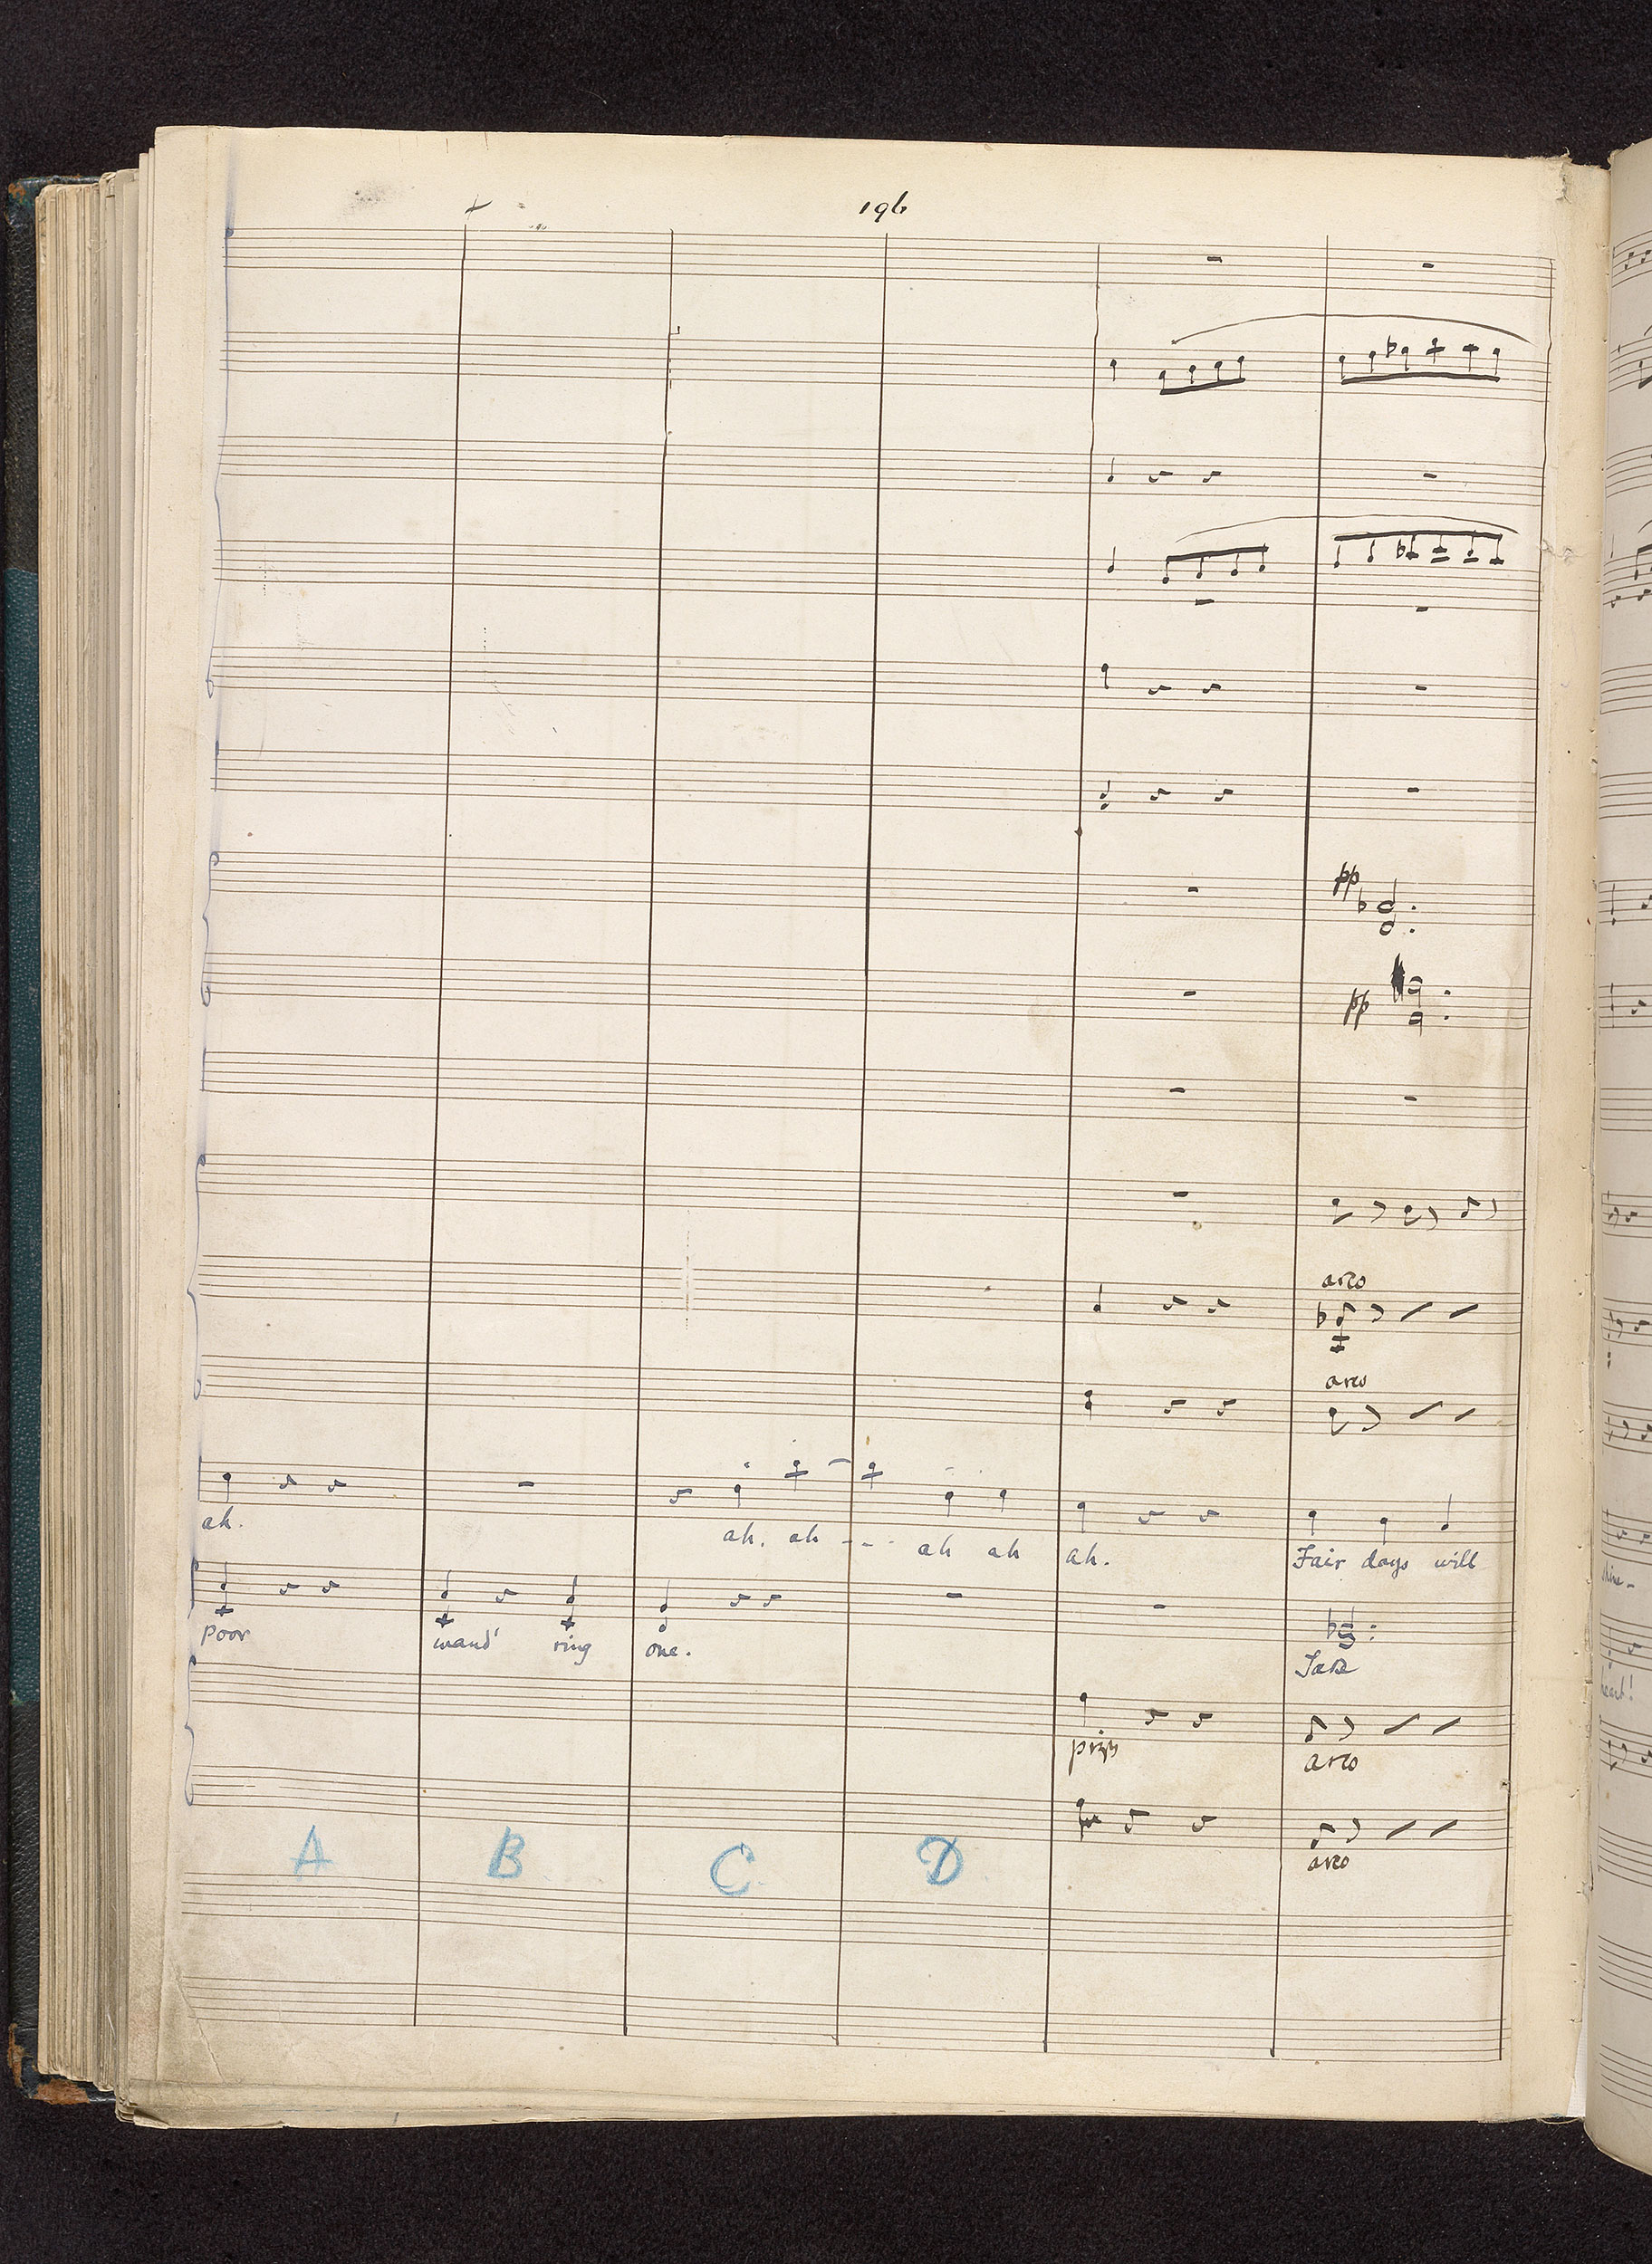 196
pp
pp
arco
arco
ah. ah. ah --- ah ah ah. Fair days will
poor wand' ring one. Take
pizz arco
arco
A B C D
shine-
heart!